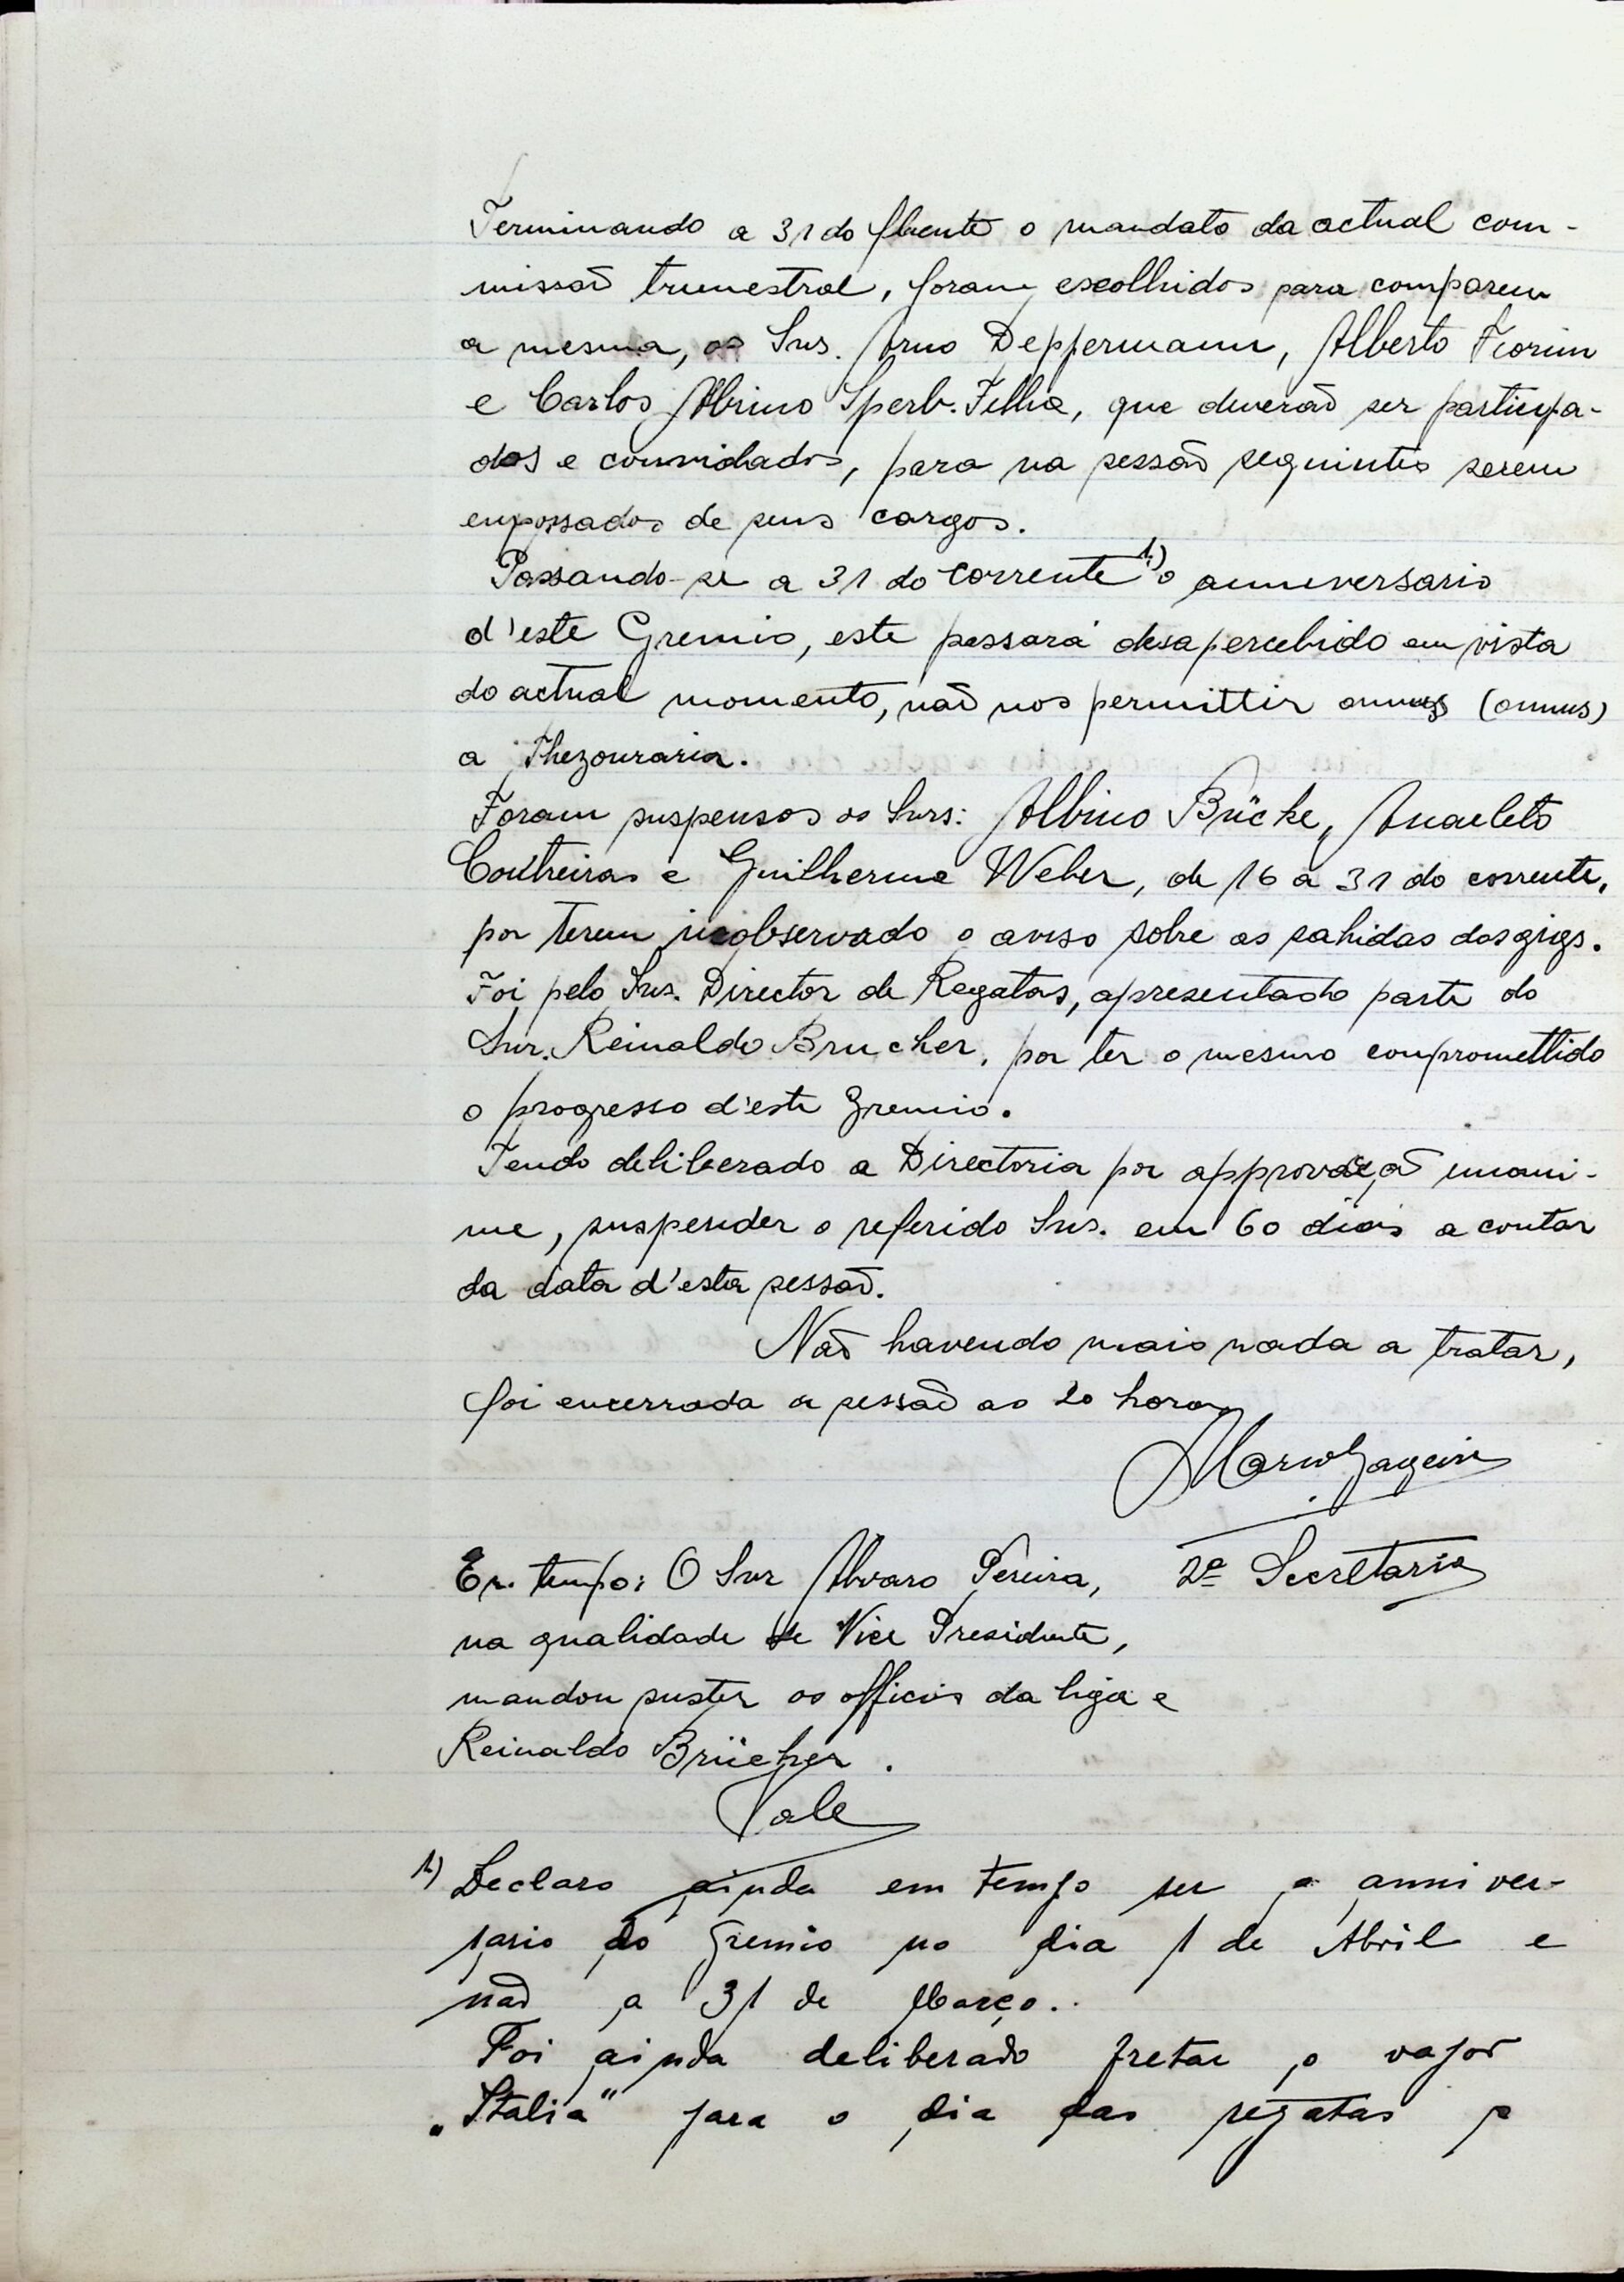 Terminando a 31 do fluente o mandato da actual com-
missão trimestral, foram escolhidos para comporem
a mesma, os Snrs. Arno Deppermann, Alberto Fiorini
e Carlos Albino Sperb. Filho, que deverão ser participa-
dos e convidados, para na sessão seguinte serem
empossados de seus cargos.
Passando-se a 31 do corrente 1.) o anniversario
d'este Gremio, este passará desapercebido em vista
do actual momento, não nos permittir onnus (onnus)
a Thezouraria.
Foram suspensos os Snrs: Albino Brücke, Anacleto
Contreiras e Guilherme Weber, de 16 a 31 do corrente,
por terem inobservado o aviso sobre as sahidas dos gigs.
Foi, pelo Snr. Director de Regatas, apresentado parte do
Snr. Reinaldo Brucher, por ter o mesmo compromettido
o progresso d'este Gremio.
Tendo deliberado a Directoria por approvação unani-
me, suspender o referido Snr. em 60 dias a contar
da data d'esta sessão.
Não havendo mais nada a tratar,
foi encerrada a sessão as 20 horas
Em tempo: O Snr Alvaro Pereira, 2º Secretario
na qualidade de Vice Presidente,
mandou suster os officios da liga e
Reinaldo Brücher.
Vale
1.) Declaro ainda em tempo ser o anniver-
sario do Gremio no dia 1 de Abril e
não a 31 de Março..
Foi ainda deliberado fretar o vapor
„Italia" para o dia das regatas